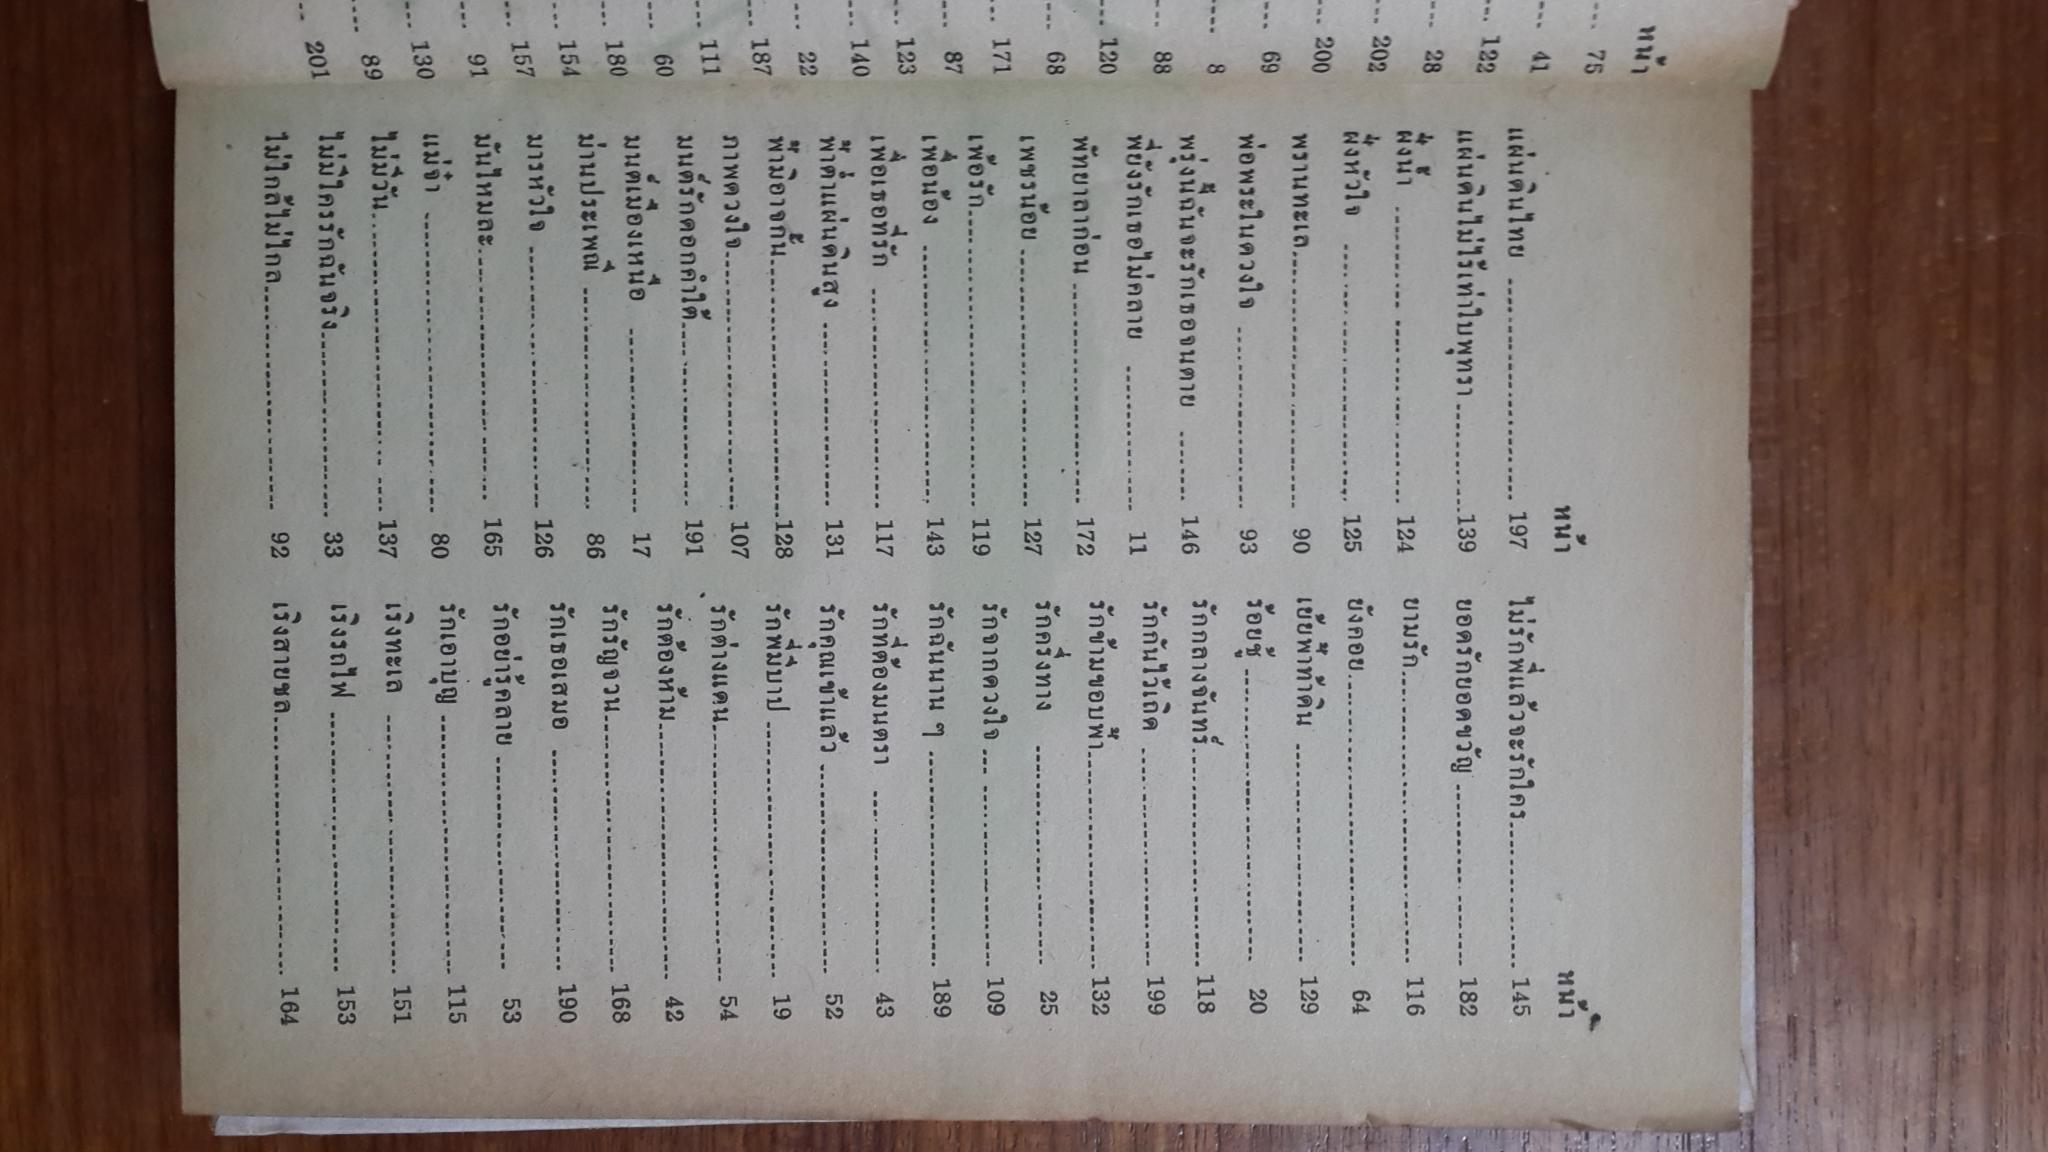 หน้า
75
41
122
28
202
200
69
8
88
120
68
171
87
123
140
22
187
111
60
180
154
157
91
130
89
201
หน้า
แผ่นดินไทย 197
แผ่นดินไม่ไร้เท่าใบพุทรา 139
ฝั่งน้ำ 124
ฝั่งหัวใจ 125
พรานทะเล 90
พ่อพระในดวงใจ 93
พรุ่งนี้ฉันจะรักเธอจนตาย 146
พี่ยังรักเธอไม่คลาย 11
พัทยาลาก่อน 172
เพชรน้อย 127
เพ้อรัก 119
เพื่อน้อง 143
เพื่อเธอที่รัก 117
ฟ้าต่ำแผ่นดินสูง 131
ฟ้ามิอาจกั้น 128
ภาพดวงใจ 107
มนต์รักดอกคำใต้ 191
มนต์เมืองเหนือ 17
ม่านประเพณี 86
มารหัวใจ 126
มันไหมละ 165
แม่จ๋า 80
ไม่มีวัน 137
ไม่มีใครรักฉันจริง 33
ไม่ใกล้ไม่ไกล 92
หน้า
ไม่รักพี่แล้วจะรักใคร 145
ยอดรักยอดขวัญ 182
ยามรัก 116
ยังคอย 64
เย้ยฟ้าท้าดิน 129
ร้อยชู้ 20
รักกลางจันทร์ 118
รักกันไว้เถิด 199
รักข้ามขอบฟ้า 132
รักครึ่งทาง 25
รักจากดวงใจ 109
รักฉันนาน ๆ 189
รักที่ต้องมนตรา 43
รักคุณเข้าแล้ว 52
รักพี่มีบาป 19
รักต่างแดน 54
รักต้องห้าม 42
รักรัญจวน 168
รักเธอเสมอ 190
รักอย่ารู้คลาย 53
รักเอาบุญ 115
เริงทะเล 151
เริงรถไฟ 153
เริงสายชล 164